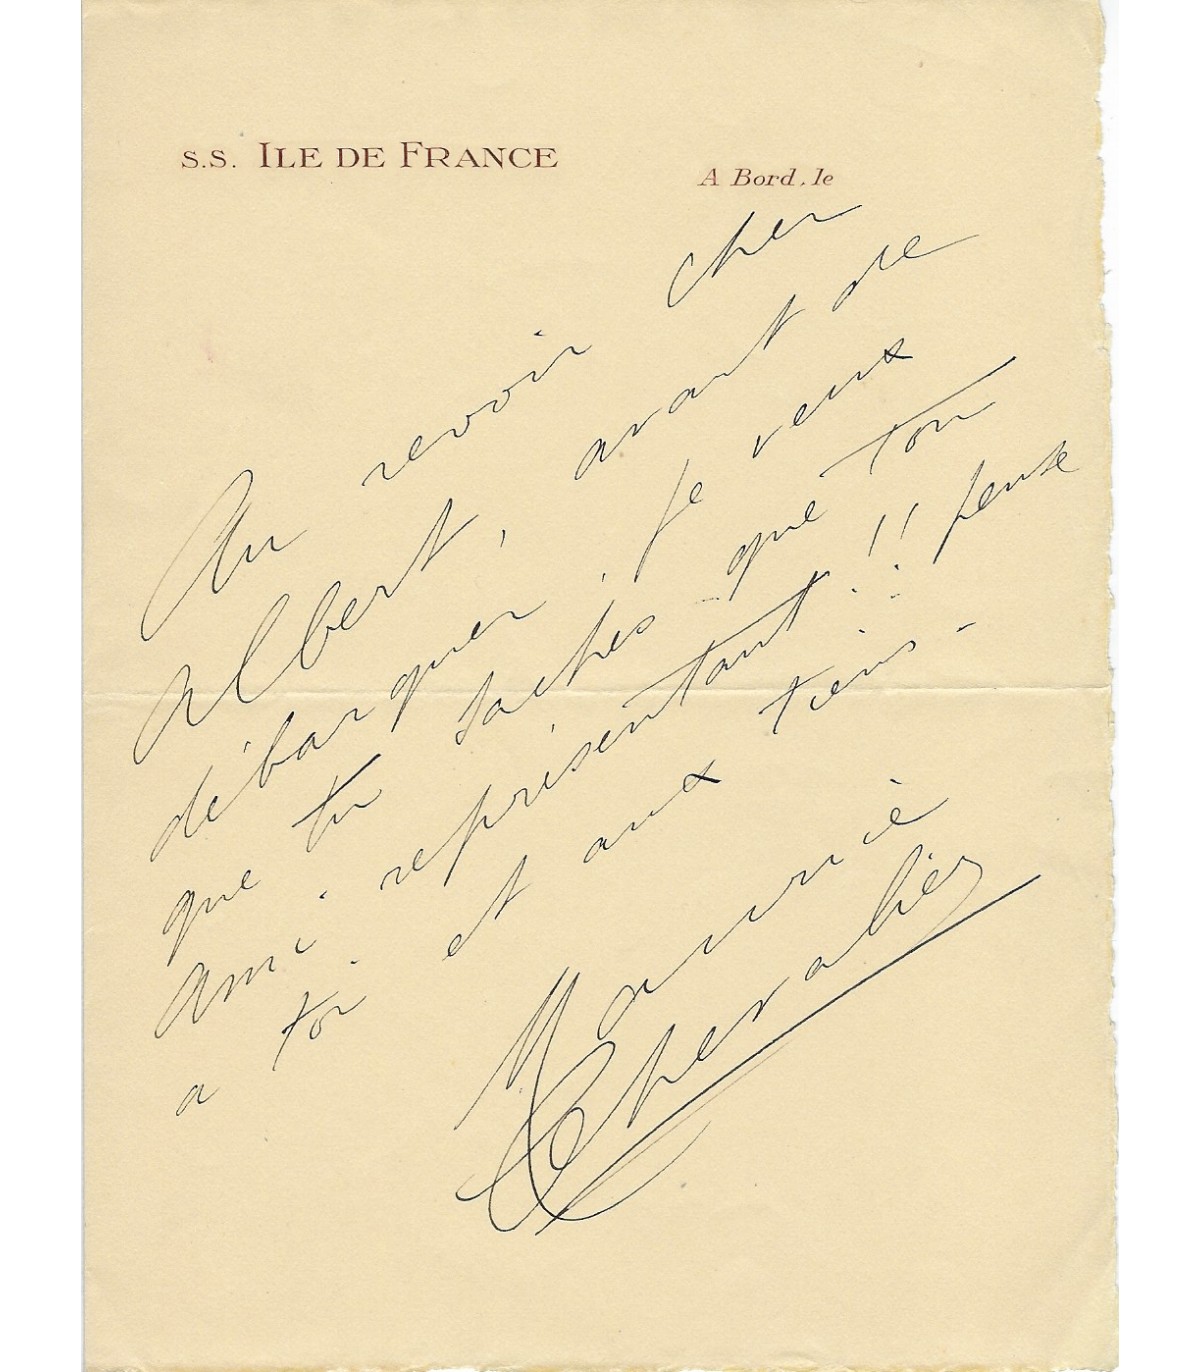 S.S. ILE DE FRANCE
A Bord, le
Au revoir cher
Albert, avant de
débarquer, je veux
que tu saches que ton
ami. représentant!! pense
a toi et aux tiens -
Maurice
Chevalier